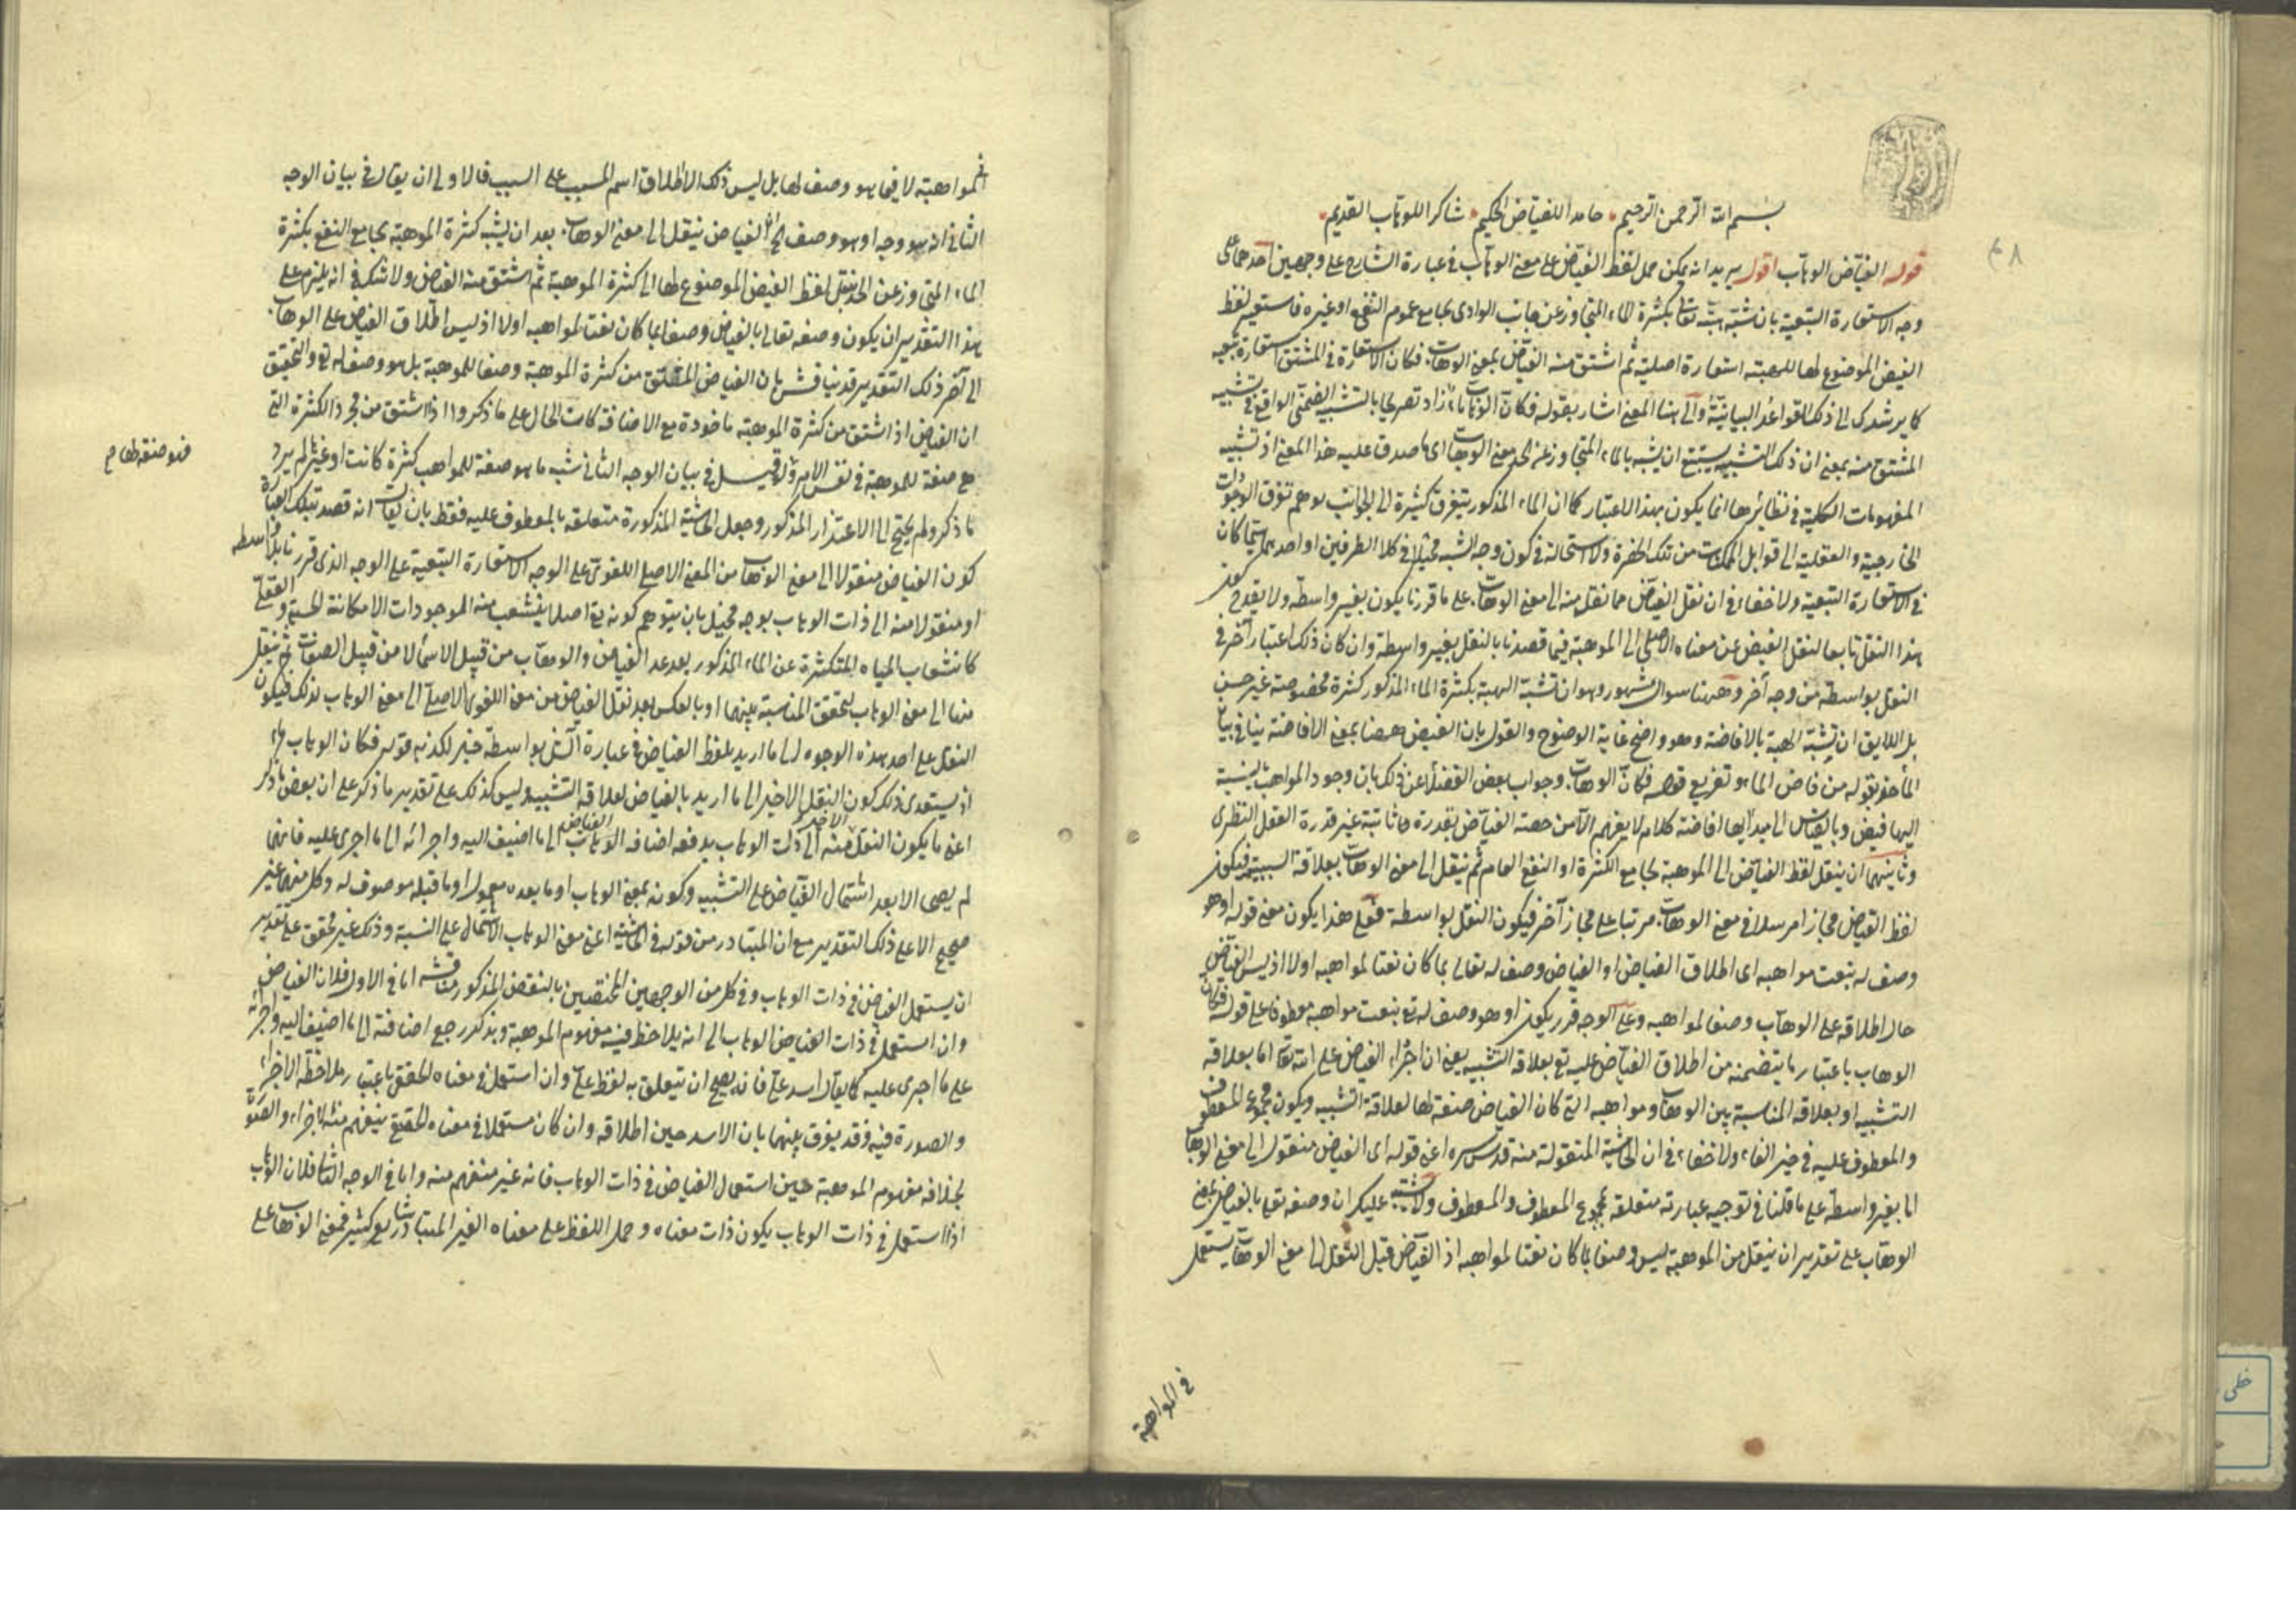 بسم الله الرحمن الرحيم حامدا للفياض الحكيم شاكرا للوهاب القديم
قوله الفياض الوهاب اقول يريد انه يمكن حمل لفظ الفياض على معنى الوهاب في عبارة الشارح على وجهين احدهما على
وجه الاستعارة التبعية بان شبه هبته تعالى بكثرة الماء المتجاوز عن جانب الوادى بجامع عموم النفع او غيره فاستعير لفظ
الفيض الموضوع لها للهبة استعارة اصلية ثم اشتق منه الفياض بمعنى الوهاب فكان الاستعارة في المشتق استعارة تبعية
كما يرشدك الى ذلك القواعد البيانية والى هذا المعنى اشار بقوله فكان الوهاب ماء زاد تصريحا بالتشبيه الضمنى الواقع في تشبيه
المشتق منه بمعنى ان ذلك التشبيه يستتبع ان يشبه بالماء المتجاوز عنه الحد معنى الوهاب اى ما صدق عليه هذا المعنى اذ تشبيه
المفهومات الكلية في نظائرها انما يكون بهذا الاعتبار كما ان الماء المذكور يتفرق كثيرة الى الجوانب يوهم تفرق الوجودات
الخارجية والعقلية الى قوابل الممكنات من تلك الحضرة ولا استحالة في كون وجه الشبه مخيلا في كلا الطرفين او احدهما سيما كان
في الاستعارة التبعية ولا خفاء في ان نقل الفياض مما نقل منه الى معنى الوهاب على ما قررنا يكون بغير واسطة ولا يقدح كون
هذا النقل تابعا لنقل الفيض عن معناه الاصلى الى الموهبة فيما قصدنا بالنقل بغير واسطة وان كان ذلك اعتبار آخر في
النقل بواسطة من وجه آخر وههنا سوال مشهور وهو ان تشبيه الهبة بكثرة الماء المذكور كثرة مخصوصة غير حسن
بل اللايق ان يشبه الهبة بالافاضة وهو واضح غاية الوضوح والقول بان الفيض ههنا بمعنى الافاضة ينافى بيان
المأخذ بقوله من فاض الماء وتفريع قوله فكان الوهاب وجواب بعض الفضلاء عن ذلك بان وجود المواهب بالنسبة
اليها فيض وبالقياس الى مبدأيها افاضة كلام لا يفهم الا من حصة الفياض بقدرة ثانية غير قدرة العقل النظرى
وثانيهما ان ينقل لفظ الفياض الى الموهبة بجامع الكثرة او النفع العام ثم ينقل الى معنى الوهاب بعلاقة السببية فيكون
لفظ الفياض مجازا مرسلا في معنى الوهاب مرتبا على مجاز آخر فيكون النقل بواسطة فعلى هذا يكون معنى قوله او هو
وصف له بنعت مواهبه اى اطلاق الفياض او الفياض وصف له تعالى بما كان نعتا لمواهبه اولا اذ ليس الفياض
حال اطلاقه على الوهاب وصفا لمواهبه وعلى الوجه قرر يكون او هو وصف له تع بنعت مواهبه معطوفا على قوله فكان
الوهاب باعتبار ما يتضمنه من اطلاق الفياض عليه تع بعلاقة التشبيه يعنى ان اجراء الفياض على الله تعالى اما بعلاقة
التشبيه او بعلاقة المناسبة بين الوهاب ومواهبه التى كان الفياض صفة لها لعلاقة التشبيه ويكون مجموع المعطوف
والمعطوف عليه في حيز الفاء ولا خفاء في ان الحاشية المنقولة منه قدس سره اعنى قوله اى الفياض منقول الى معنى الوهاب
اما بغير واسطة على ما قلنا في توجيه عبارته متعلقة بمجموع المعطوف والمعطوف ولا يشتبه عليك ان وصفه تعالى بالفياض بمعنى
الوهاب على تقدير ان ينقل من الموهبة ليس وصفا بما كان نعتا لمواهبه اذ الفياض قبل النقل الى معنى الوهاب يستعمل
في المواهبة
في المواهبة لا فيما هو وصف لها بل ليس ذلك الا اطلاق اسم المسبب على السبب فالاولى ان يقال في بيان الوجه
الثانى انه هو وجه او هو وصف الخ الفياض ينقل الى معنى الوهاب بعد ان يشبه كثرة الموهبة بجامع النفع بكثرة
الماء المتجاوز عن الحد فينقل لفظ الفيض الموضوع لها الى كثرة الموهبة ثم اشتق منه الفياض ولا شك في انه يلزم على
هذا التقدير ان يكون وصفه تعالى بالفياض وصفا بما كان نعتا لمواهبه اولا اذ ليس اطلاق الفياض على الوهاب
الى آخر ذلك التقدير قد يناقش بان الفياض المشتق من كثرة الموهبة وصفا للموهبة بل هو وصف له تع والتحقيق
ان الفياض اذ اشتق من كثرة الموهبة ماخوذة مع الاضافة كانت الحال على ما ذكر واذا اشتق من مجرد الكثرة التى
هى صفة للموهبة في نفس الامر قيل في بيان الوجه الثانى شبه ما هو صفة للمواهب كثرة كانت او غيرها لم يرد
فهو صفة لها م
ما ذكر ولم يحتج الى الاعتذار المذكور وجعل الحاشية المذكورة متعلقة بالمعطوف عليه فقط بان يقال انه قصد بتلك العبارة
كون الفياض منقولا الى معنى الوهاب من المعنى الاصلى اللغوى على الوجه الاستعارة التبعية على الوجه الذى قررنا بلا واسطة
او منقولا منه الى ذات الوهاب بوجه مخيل بان يتوهم كونه تع اصلا ينشعب منه الموجودات الامكانية الحسية والعقلية
كانشعاب المياه المتكثرة عن الماء المذكور بعد عد الفياض والوهاب من قبيل الاسماء لا من قبيل الصفات ثم ينقل
منها الى معنى الوهاب لتحقق المناسبة بينهما او بالعكس بعد نقل الفياض من معنى اللغوى الاصلى الى معنى الوهاب لذلك فيكون
النقل على احد هذه الوجوه الى ما اريد بلفظ الفياض في عبارة الش بواسطة خبر لكذبه قوله فكان الوهاب ماء
اذ يستعدى ذلك كون النقل الاخير الى ما اريد بالفياض لعلاقة التشبيه وليس كذلك على تقدير ما ذكر على ان بعض ما ذكر
اعنى ما يكون النقل الاخير منه الى ذات الوهاب يدفعه اضافة الوهاب الفياض الى ما اضيف اليه واجرائه الى ما اجرى عليه فانهما
لم يصحا الا بعد اشتمال الفياض على التشبيه وكونه بمعنى الوهاب او ما بعده معمولا وما قبله موصوف له وكل منهما غير
صحيح الا على ذلك التقدير مع ان المتبادر من قوله في الحاشية اعنى معنى الوهاب الاشتمال على النسبة وذلك غير محقق على تقدير
ان يستعمل الفياض في ذات الوهاب وفى كل من الوجهين المختصين بالنقض المذكور مناقشة اما في الاول فلان الفياض
وان استعمل في ذات الفياض الوهاب الى انه يلاحظ فيه مفهوم الموهبة وبذكره رجع اضافته الى ما اضيف اليه واجراؤه
على ما اجرى عليه كما يقال اسد على فانه يصح ان يتعلق به لفظ على وان استعمل في معناه الحقيقى باعتبار ملاحظة الاجزاء
والصورة فيه وقد يفرق بينهما بان الاسد حين اطلاقه وان كان مستعملا في معناه الحقيقى ينفهم منه الاجزاء والصورة
بخلاف مفهوم الموهبة حين استعمال الفياض في ذات الوهاب فانه غير منفهم منه واما في الوجه الثانى فلان الوهاب
اذا استعمل في ذات الوهاب يكون ذات معناه وحمل اللفظ على معناه الغير المتبادر شايع كثير فمعنى الوهاب على
خطى